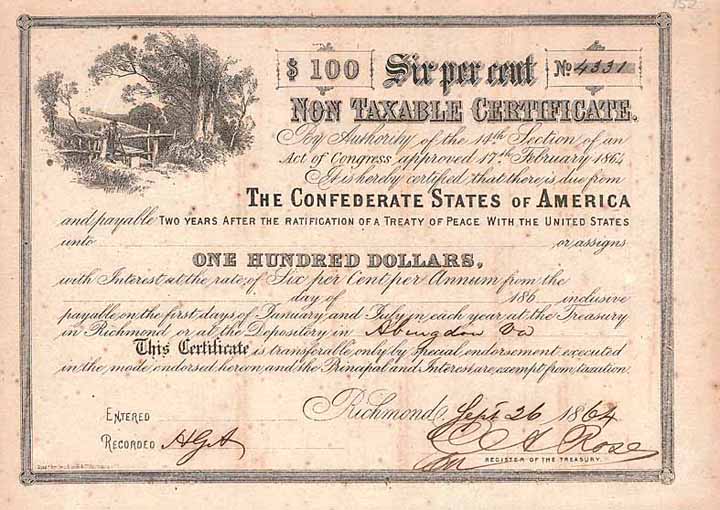 $ 100 Six per cent No 4331
NON TAXABLE CERTIFICATE.
By Authority of the 14th Section of an
Act of Congress approved 17th February 1864
It is hereby certified that there is due from
THE CONFEDERATE STATES OF AMERICA
and payable TWO YEARS AFTER THE RATIFICATION OF A TREATY OF PEACE WITH THE UNITED STATES
unto or assigns
ONE HUNDRED DOLLARS,
with Interest at the rate of Six per Cent per Annum from the
day of 186 inclusive
payable on the first days of January and July in each year at the Treasury
in Richmond or at the Depository in Abingdon Va
This Certificate is transferable only by special endorsement executed
in the mode endorsed hereon and the Principal and Interest are exempt from taxation.
ENTERED Richmond, Sept 26 1864
RECORDED HGA Rose
REGISTER OF THE TREASURY.